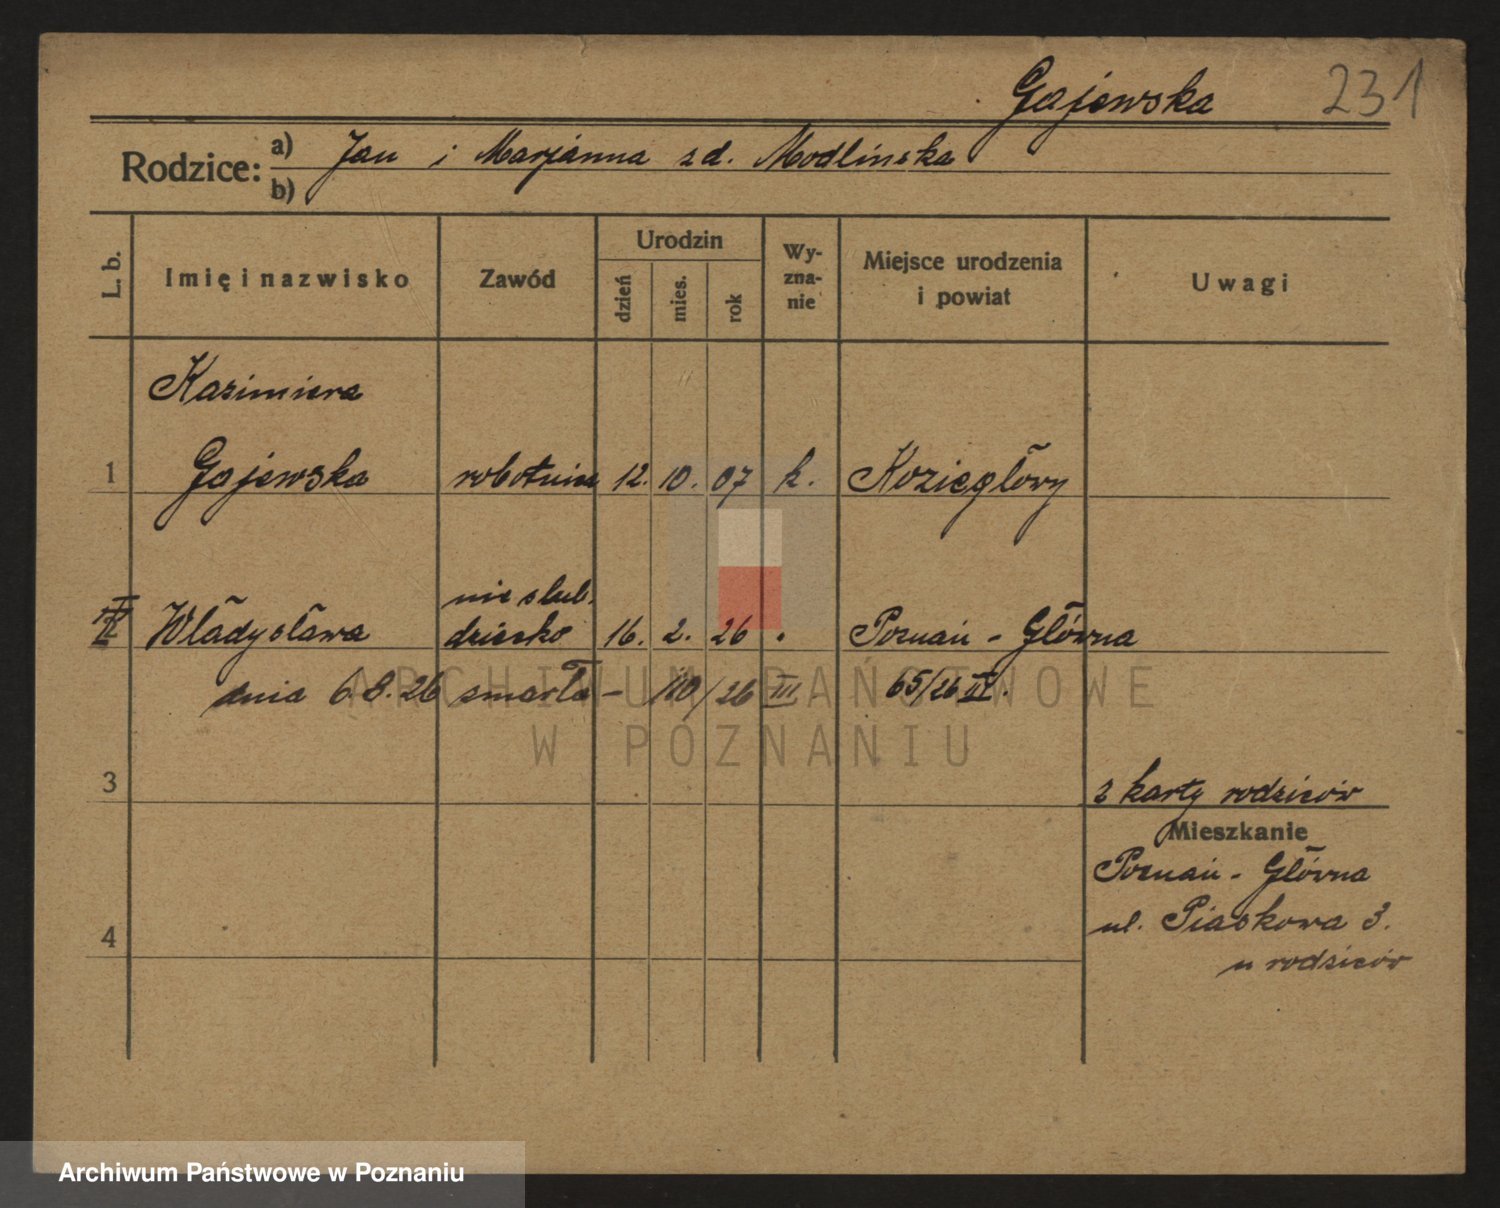 Gajewska 231
Rodzice: a) Jan i Marjanna zd. Modlinska
b)
L. b. Imię i nazwisko Zawód Urodzin dzień mies. rok Wy-zna-nie Miejsce urodzenia i powiat Uwagi
Kazimiera
1 Gajewska robotnica 12. 10. 07 k. Kozieglowy
nieslub.
Wladyslawa dziecko 16. 2. 26 . Poznań - Glówna
dnia 6.8.26 smarla - 110/26 III 65/26 IV.
ARCHIWUM PAŃSTWOWE
W POZNANIU
3 z karty rodziców
Mieszkanie
Poznań - Glówna
ul. Piaskowa 3.
4
u rodziców
Archiwum Państwowe w Poznaniu